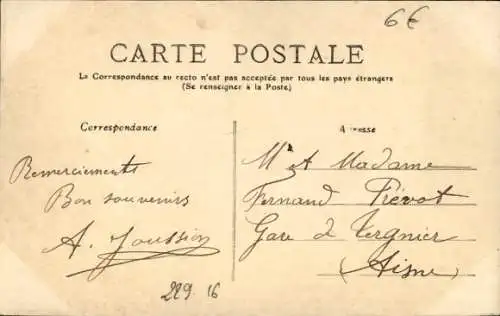 6€
CARTE POSTALE
La Correspondance au recto n'est pas acceptée par tous les pays étrangers
(Se renseigner à la Poste.)
Correspondance
Adresse
Remerciements
Bon souvenirs
A. Joussion
Mr et Madame
Fernand Prévot
Gare de Tergnier
(Aisne)
229 16